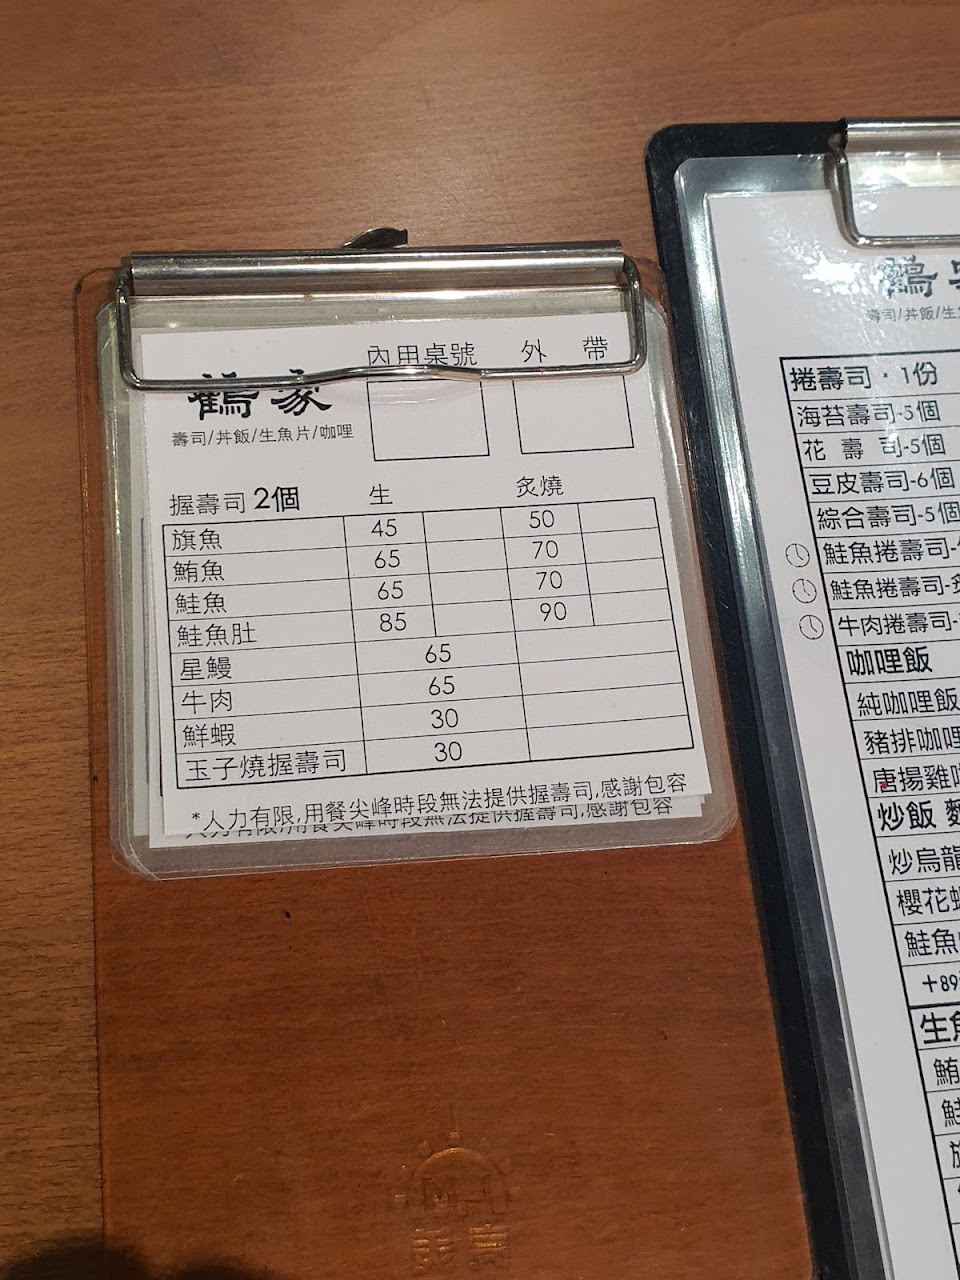 內用桌號 外 帶
鶴家
壽司/丼飯/生魚片/咖哩
握壽司 2個 生 炙燒
旗魚 45 50
鮪魚 65 70
鮭魚 65 70
鮭魚肚 85 90
星鰻 65
牛肉 65
鮮蝦 30
玉子燒握壽司 30
*人力有限,用餐尖峰時段無法提供握壽司,感謝包容
人力有限,用餐尖峰時段無法提供握壽司,感謝包容
鶴
壽司/丼飯/生
捲壽司・1份
海苔壽司-5個
花 壽 司-5個
豆皮壽司-6個
綜合壽司-5個
鮭魚捲壽司-
鮭魚捲壽司-
牛肉捲壽司-
咖哩飯
純咖哩飯
豬排咖哩
唐揚雞
炒飯 麵
炒烏龍
櫻花蝦
鮭魚
+89
生魚
鮪
鮭